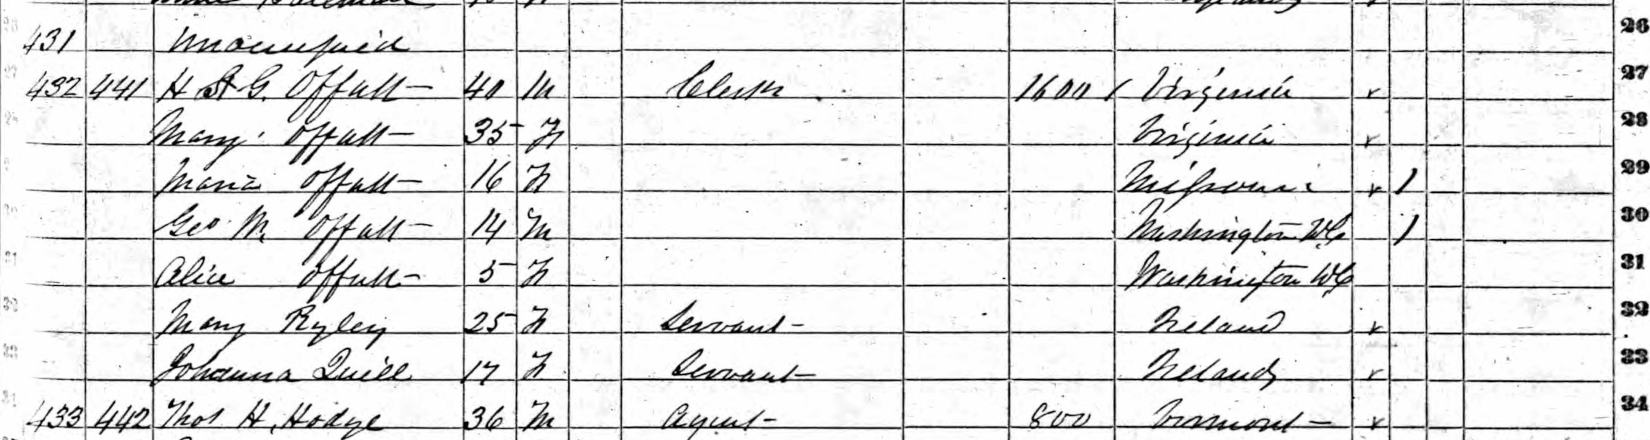 26
431 Unoccupied
432 441 H St G. Offutt 40 M Clerk 1600 Virginia 27
Mary Offutt 35 F Virginia 28
Maria Offutt 16 F Missouri 1 29
Geo M. Offutt 14 M Washington DC 1 30
Alice Offutt 5 F Washington DC 31
Mary Ryley 25 F Servant Ireland 32
Johanna Quill 17 F Servant Ireland 33
433 442 Thos H. Hodge 36 M Agent 800 Vermont 34